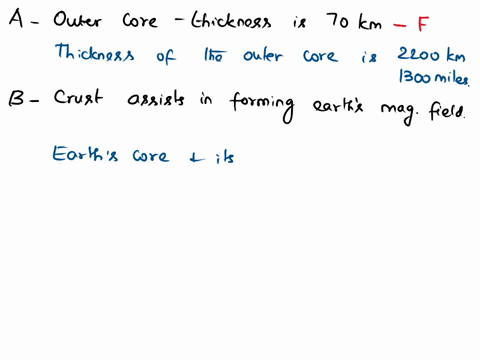 A - Outer core - thickness is 70 km - F
Thickness of the outer core is 2200 km
1300 miles.
B - Crust assists in forming earth's mag. field.
Earth's core + its